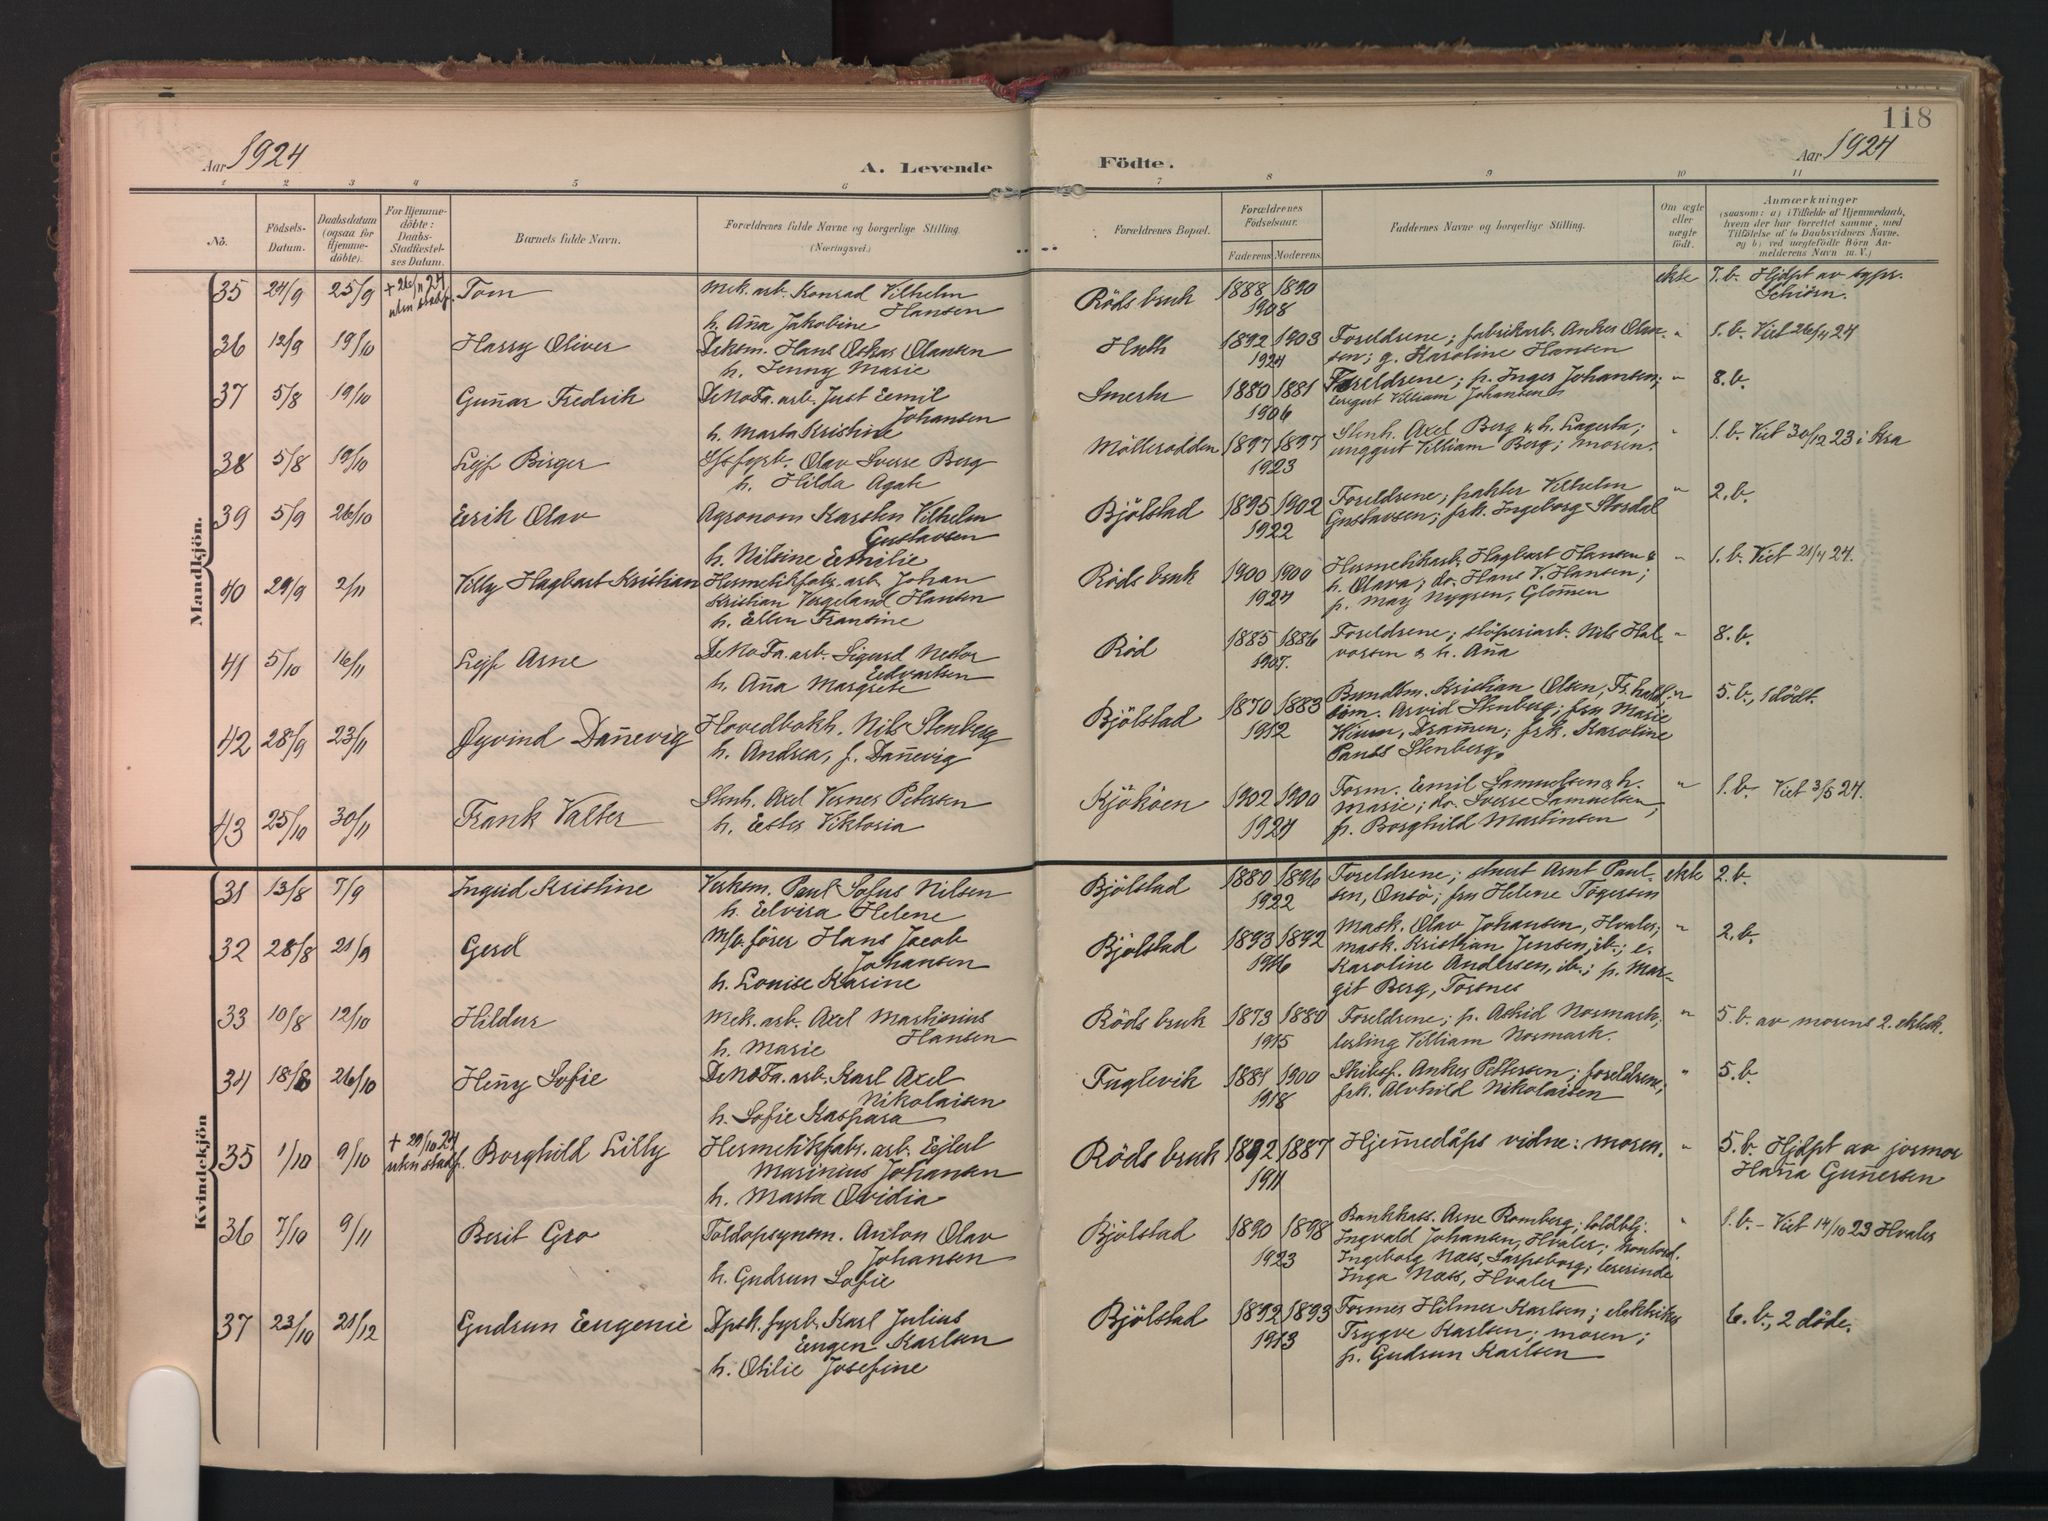 118
Aar 1924
A. Levende
Födte.
Aar 1924
1 2 3 4 5 6 7 8 9 10 11
No.
Födsels-
Datum.
Daabsdatum
(ogsaa for
Hjemme-
döbte).
For Hjemme-
döbte:
Daabs-
Stadfæstel-
ses Datum.
Barnets fulde Navn.
Forældrenes fulde Navne og borgerlige Stilling.
(Næringsvei.)
Forældrenes Bopæl.
Forældrenes
Födselsaar.
Faderens. Moderens.
Faddernes Navne og borgerlige Stilling.
Om ægte
eller
uægte
födt.
Anmærkninger
(saasom: a) i Tilfælde af Hjemmedaab,
hvem der har forrettet samme, med
Tilföielse af to Daabsvidners Navne,
og b) ved uægtefödte Börn An-
melderens Navn m. V.)
Mandkjön.
35 24/9 25/9 + 26/11 24
uten stadf. Tom
Mek. arb. Konrad Vilhelm
Hansen
h. Aña Jakobine
Röds bruk 1888 1890
1908
ekte 7. b. Hjdpt av sypr.
Schiörn.
36 12/9 19/10 Harry Oliver
Dekom. Hans Oskar Olansen
h. Jenny Marie
Huth 1892 1903
1924
Foreldrene; fabrikarb. Anker Olan-
sen; g. Karoline Hansen
" 1. b. Viet 26/4 24
37 5/8 19/10 Guñar Fredrik
DeNoFa. arb. Just Emil
Johansen
h. Marta Kristine
Smertu 1880 1881
1906
Foreldrene; p. Inger Johansen;
Villiam Johansen
" 8. b.
38 5/8 19/10 Lejf Birger
Olav Sverre Berg
h. Hilda Agate
Mölleradden 1897 1897
1923
Stenh. Axel Berg & h. Lagerta;
unggut Villiam Berg; moren.
" 1. b. Viet 30/12 23 i Kra
39 5/9 26/10 Erik Olav
Agronom Karsten Vilhelm
Gustavsen
h. Nilsine Emilie
Bjölstad 1895 1902
1922
Foreldrene; pakter Vilhelm
Gustavsen; frk. Ingeborg Stordal
" 2. b.
40 29/9 2/11 Villy Hagbart Kristian
Hermetikfabr. arb. Johan
Kristian Vergeland Hansen
h. Ellen Fransine
Röds bruk 1900 1900
1924
Hermetikarb. Hagbart Hansen &
h. Olava; do. Hans V. Hansen;
p. May Nygren, Glom̃en
" 1. b. Viet 21/4 24.
41 5/10 16/11 Lejf Arne
DeNoFa. arb. Sigurd Nestor
Edvartsen
h. Aña Margrete
Röd 1885 1886
1907.
Foreldrene; stöperiarb. Nils Hal-
vorsen & h. Aña
" 8. b.
42 28/9 23/11 Øyvind Dañevig
Hovedbokh. Nils Stenberg
h. Andrea, f. Dañevig
Bjölstad 1870 1883
1912
Kristian Olsen, Fr.hald;
Arvid Stenberg; fru Marie
Dram̃en; frk. Karoline
Stenberg.
" 5. b., 1 dödt.
43 25/10 30/11 Frank Valter
Stenh. Axel Verner Petersen
h. Ester Viktoria
Kjököen 1902 1900
1924
Form. Emil Samuelsen & h.
Marie; do. Sverre Samuelsen;
p. Borghild Martinsen
" 1. b. Viet 3/5 24.
Kvindekjön
31 13/8 7/9 Ingrid Kristine
Verksm. Paul Sofus Nilsen
h. Elvira Helene
Bjölstad 1880 1896
1922
Foreldrene; stuert Arnt Paul-
sen, Onsö; fru Helene Togersen
ekte 2. b.
32 28/8 21/9 Gerd
M/b. förer Hans Jacob
Johansen
h. Louise Karine
Bjölstad 1893 1892
1916
Mask. Olav Johansen, Hvaler;
mask. Kristian Jensen, ib.; e.
Karoline Andersen, ib.; p. Mar-
git Berg, Torsnes
" 2. b.
33 10/8 12/10 Hildur
Mek. arb. Axel Martinius
Hansen
h. Marie
Röds bruk 1873 1880
1915
Foreldrene; p. Astrid Normark;
lerling Villiam Normark.
" 5. b. av morens 2. ektesk.
34 18/8 26/10 Heñy Sofie
DeNoFa. arb. Karl Axel
Nikolaisen
h. Sofie Kaspara
Fuglevik 1884 1900
1918
Skibsf. Anker Pettersen; foreldrene;
frk. Alvhild Nikolaisen
" 5. b.
35 1/10 9/10 + 29/10 24
uten stadf. Borghild Lilly
Hermetikfabr. arb. Ejlert
Marinius Johansen
h. Marta Ovidia
Röds bruk 1892 1887
1911
Hjem̃edåps vidne: moren.
" 5. b. Hjdpt av jormor
Haña Guñersen
36 7/10 9/11 Berit Gro
Toldopsynsm. Anton Olav
Johansen
h. Gudrun Sofie
Bjölstad 1890 1898
1923
Bankkass. Arne Romberg; toldbtj.
Ingvald Johansen, Hvaler; kontord.
Ingeborg Næss, Sarpsborg; lererinde
Inga Næss, Hvaler
" 1. b. – Viet 14/10 23 Hvaler
37 23/10 21/12 Gudrun Eugenie
Dpsk. fyrb. Karl Julius
Eugen Karlsen
h. Otilie Josefine
Bjölstad 1892 1893
1913
Former Hilmer Karlsen; elektriker
Trygve Karlsen; moren;
p. Gudrun Karlsen
6. b., 2 döde.